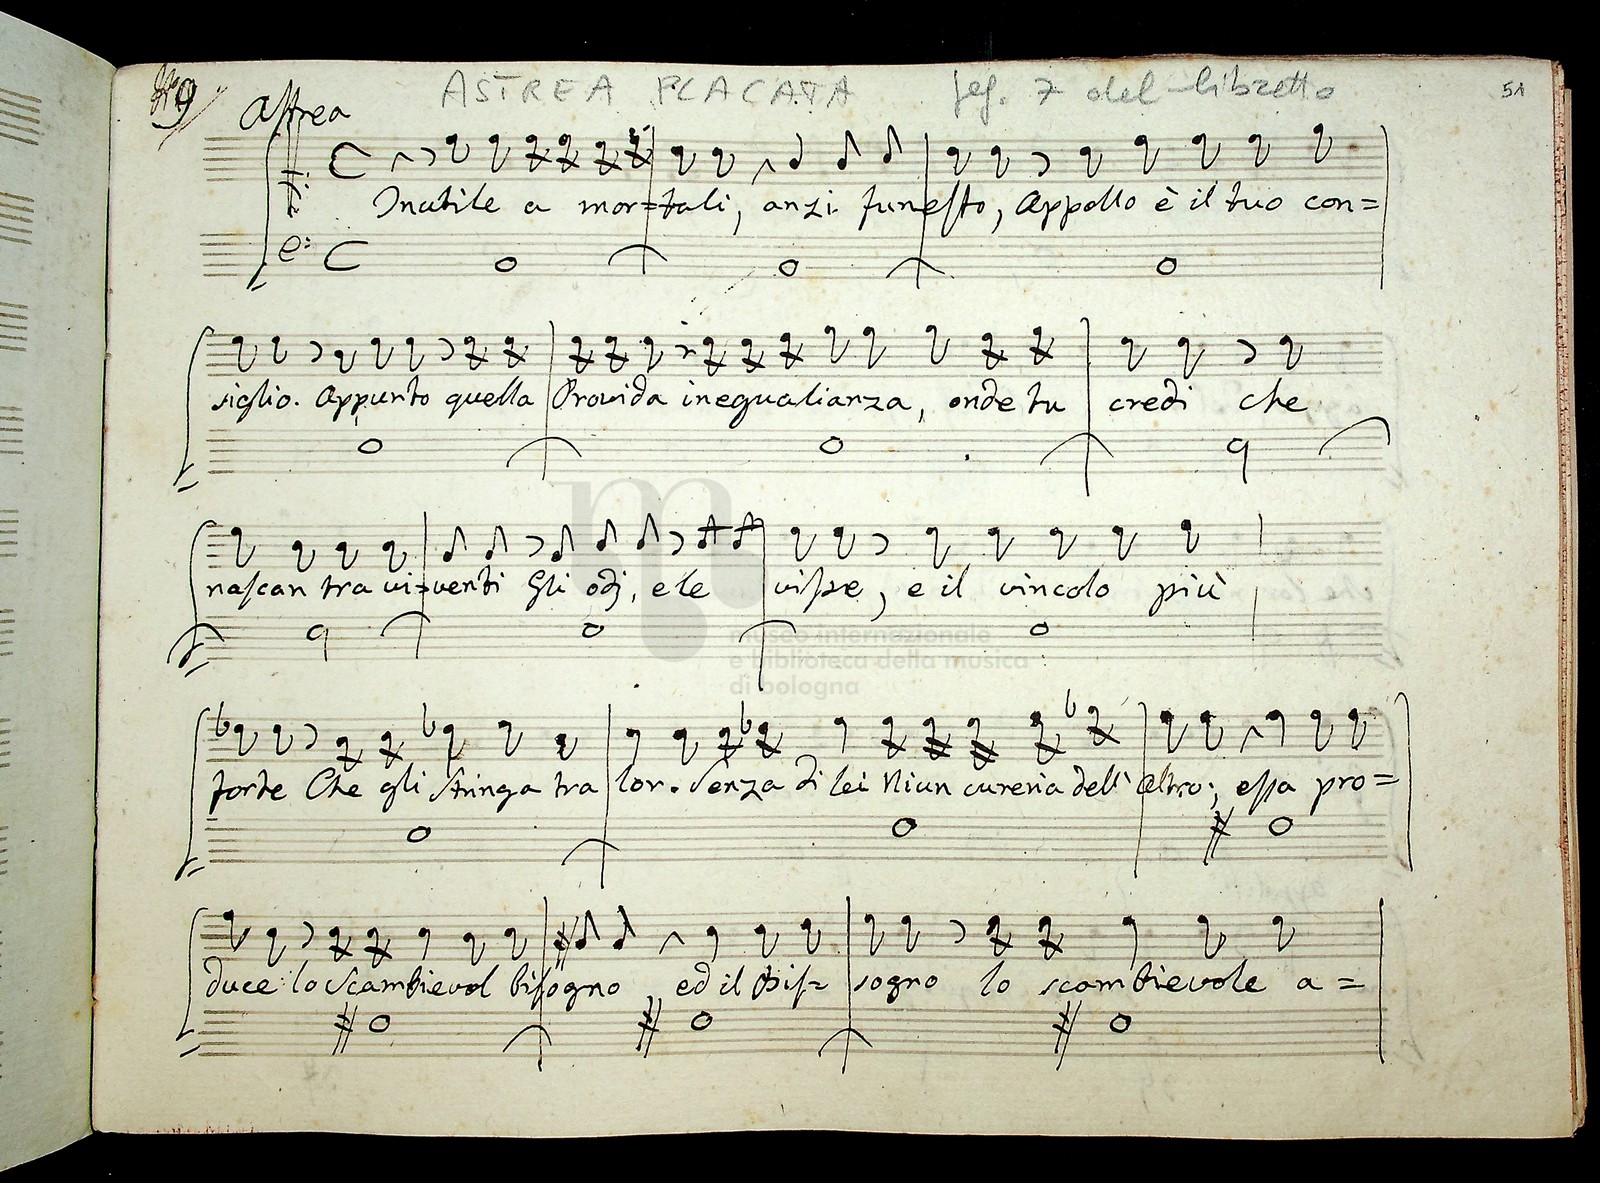 9 ASTREA PLACATA pag. 7 del libretto 51
Astrea
Inutile a mor=tali, anzi funesto, Appollo è il tuo con=
siglio. Appunto quella Provida inegualianza, onde tu credi che
nascan tra vi=venti Gli odj, e le risse, e il vincolo più
forte Che gli stringa tra lor. Senza di lei Niun cureria dell' altro; essa pro=
duce lo scambievol bisogno, ed il bis= sogno lo scambievole a=
museo internazionale
e biblioteca della musica
di bologna